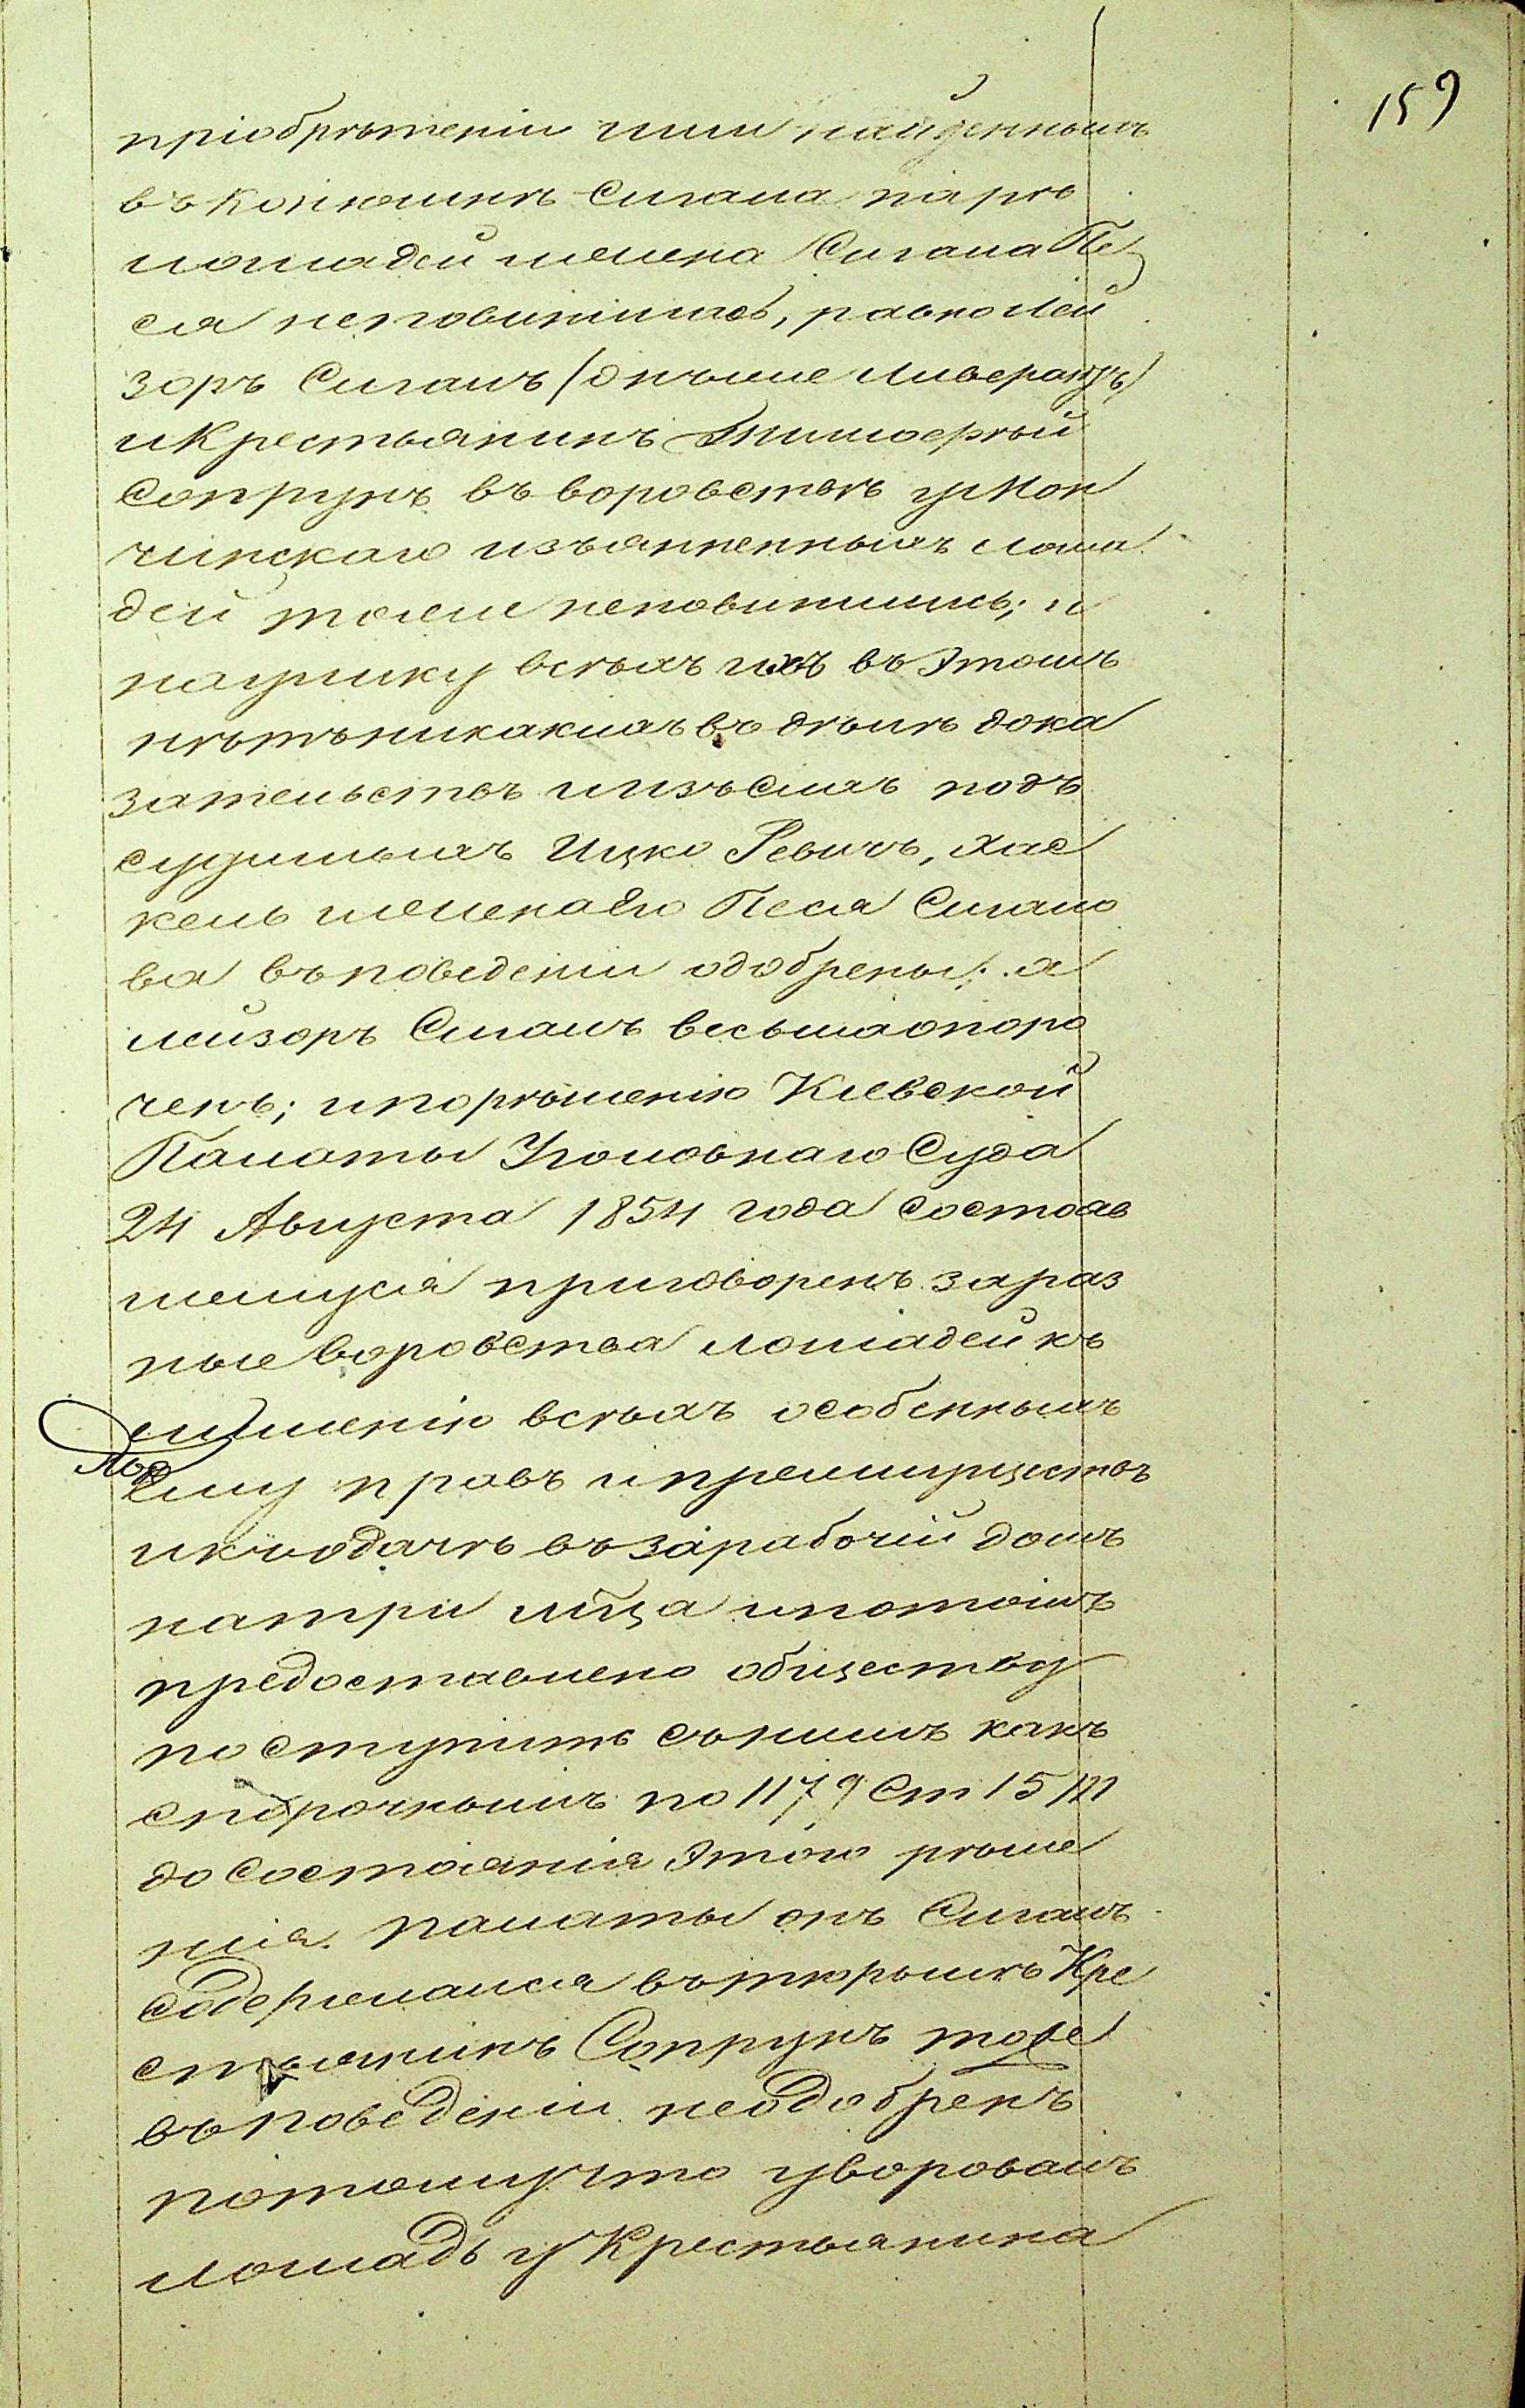 159
пріобрѣтеніи ими найденныхъ
въ конюшнѣ Сигала парѣ
лошадей и жена Сигала Пе
ся неповинились, равно Лей
зоръ Сигалъ (онъ же Ливерантъ)
и Крестьянинъ Тимофѣй
Сопрунъ въ воровствѣ у Мон
чинскаго изъясненныхъ лоша
дей тоже неповинились; и
наулику всѣхъ ихъ въ этомъ
нѣтъ никакихъ въ дѣлѣ дока
зательствъ и изъ сихъ под
судимыхъ Ицко Ревичъ, Хас
кель и жена его Песя Сигало
ва въ поведеніи одобрены; а
Лейзоръ Сигалъ весьма опоро
ченъ; и по рѣшенію Кіевской
Палаты Уголовнаго Суда
24 Августа 1854 года состояв
шемуся приговоренъ за раз
ные воровства лошадей къ
лишенію всѣхъ особенныхъ
ему правъ и преимуществъ
и къ одачѣ въ зарабочій домъ
на три м҃ца и потомъ
предоставлено обществу
поступить съ нимъ какъ
спорочнымъ по 1179 Ст 15 т
до состоянія этого рѣше
нія палаты онъ Сигалъ
содержался въ тюрьмѣ Кре
стьянинъ Сопрунъ тоже
въ поведеніи неодобренъ
потому что уворовалъ
лошадь у Крестьянина